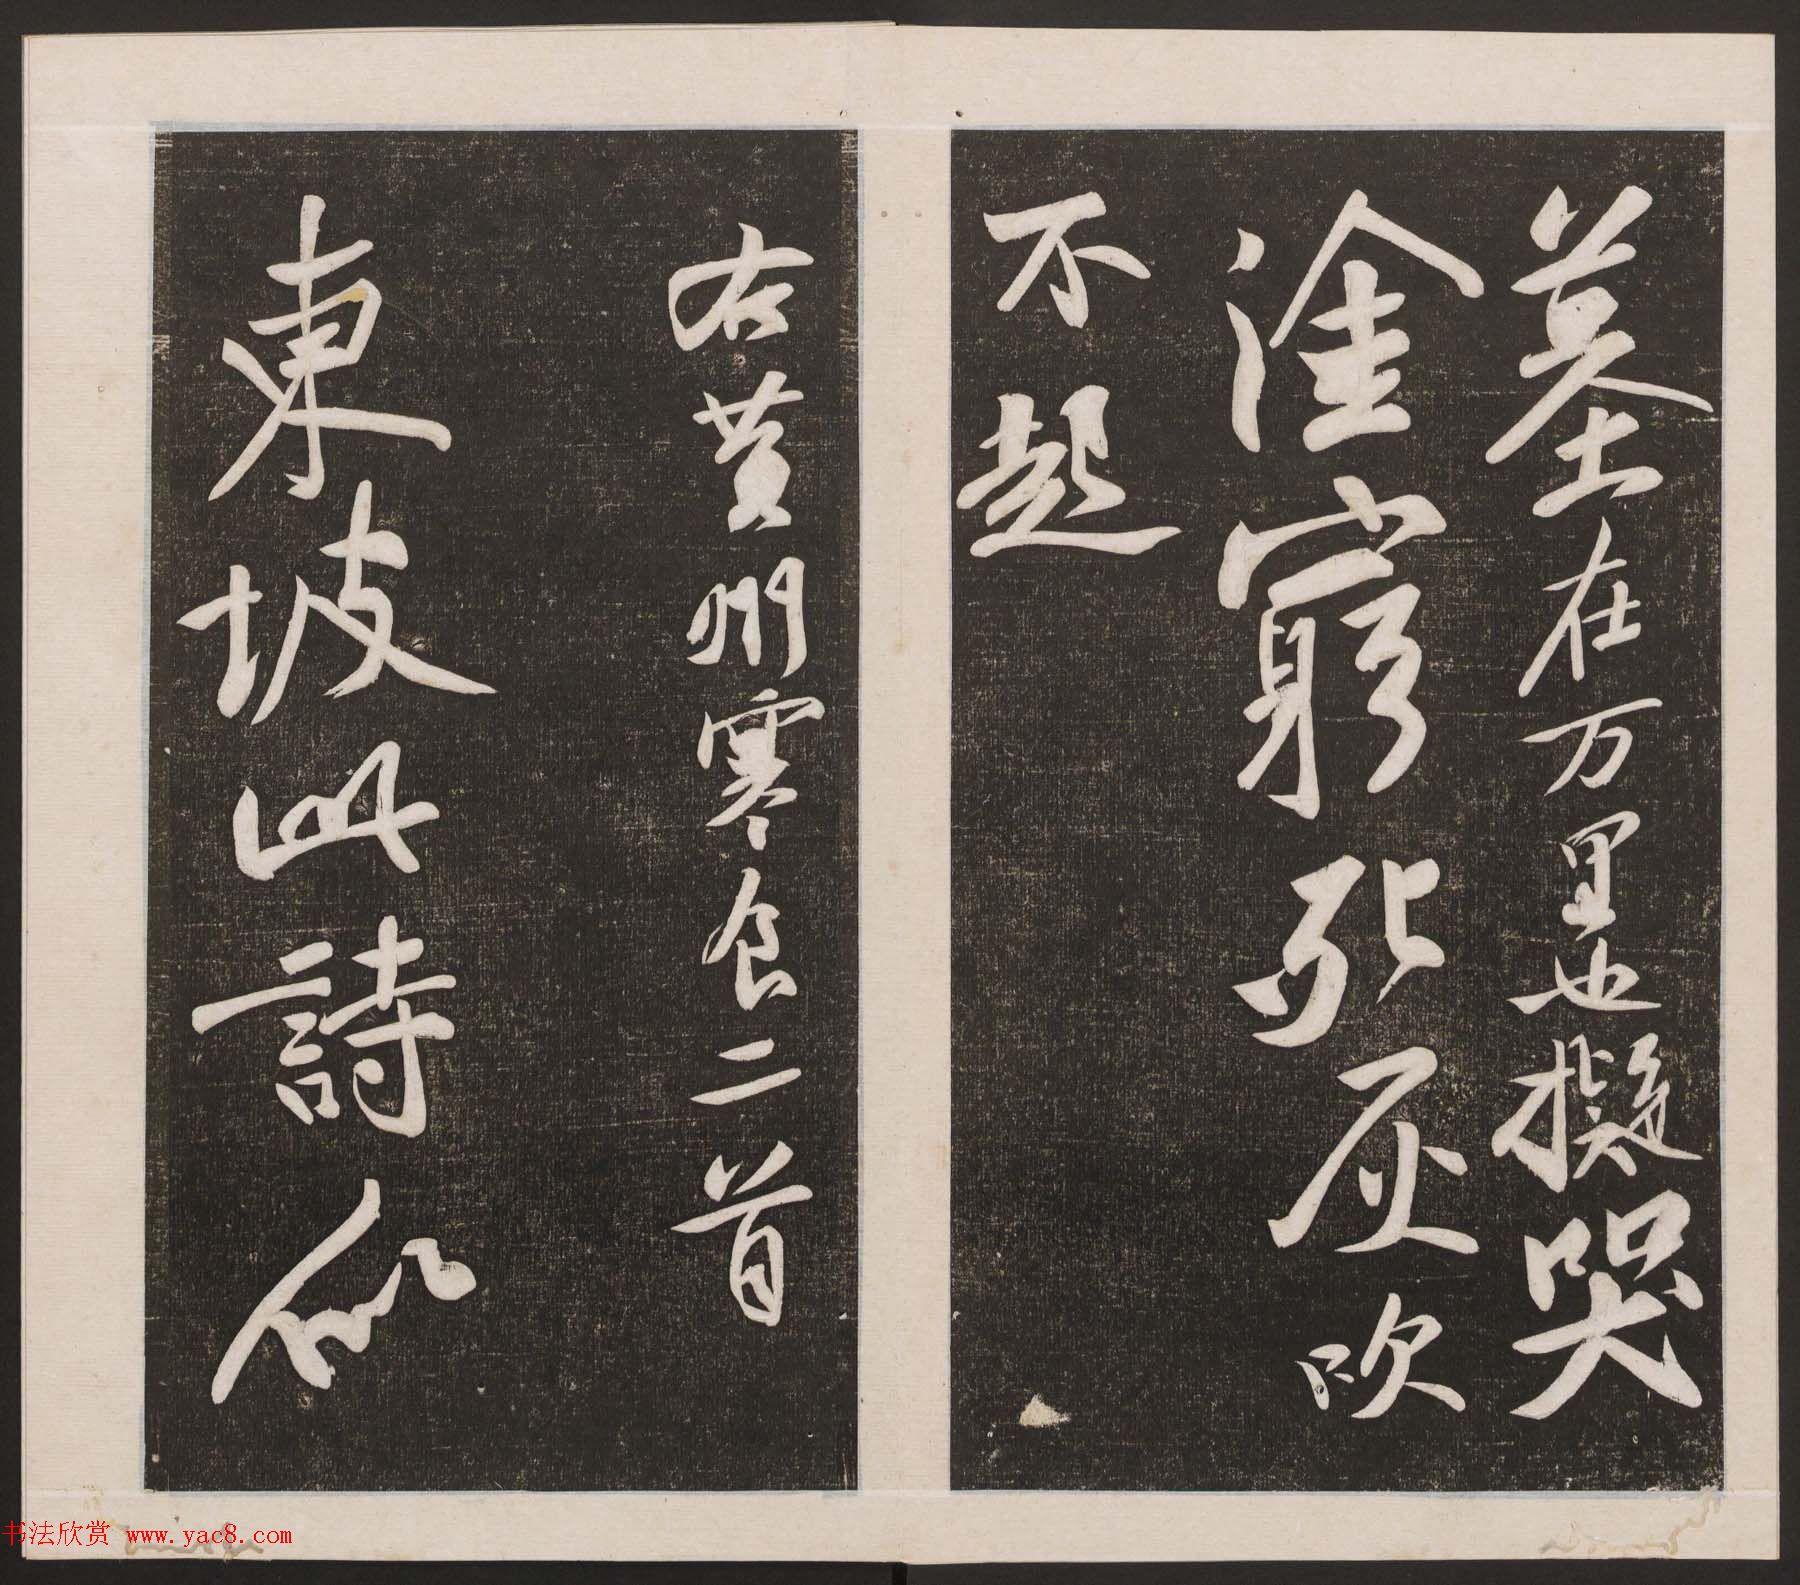 墓在万里也擬哭
塗窮死灰吹
不起
右黃州寒食二首
東坡此詩似
书法欣赏 www.yac8.com